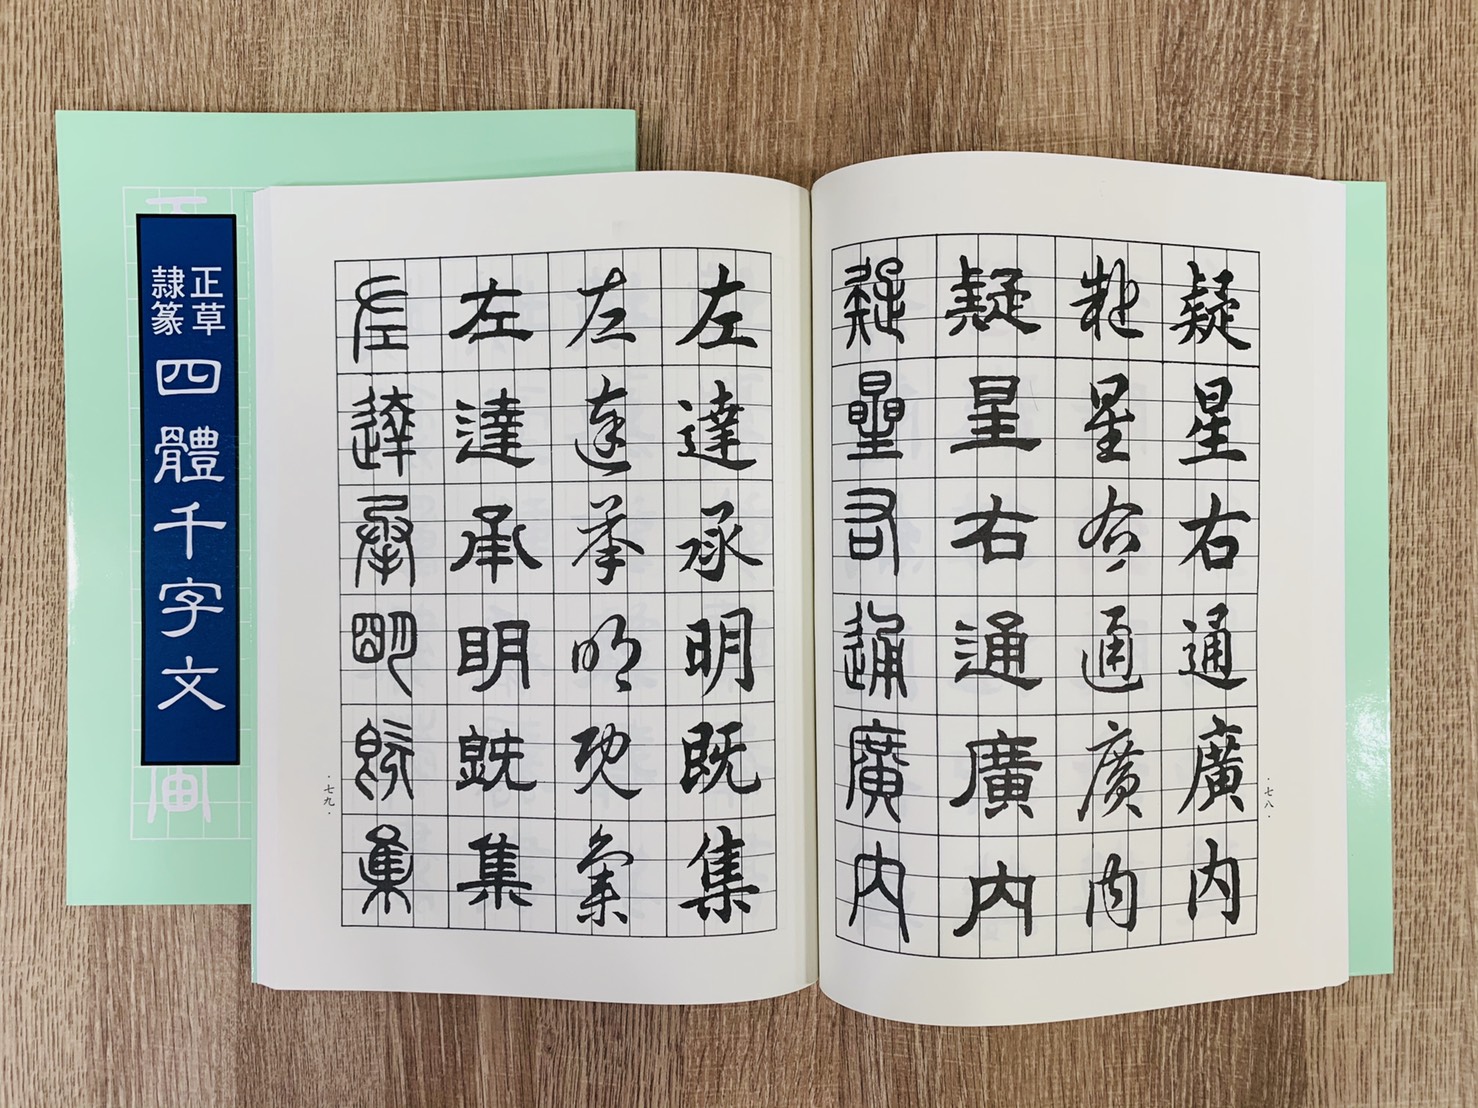 正草
隸篆
四體千字文
疑星右通廣內
疑星右通廣內
疑星右通廣內
疑星右通廣內
·七八·
左達承明既集
左達承明既集
左達承明既集
左達承明既集
·七九·